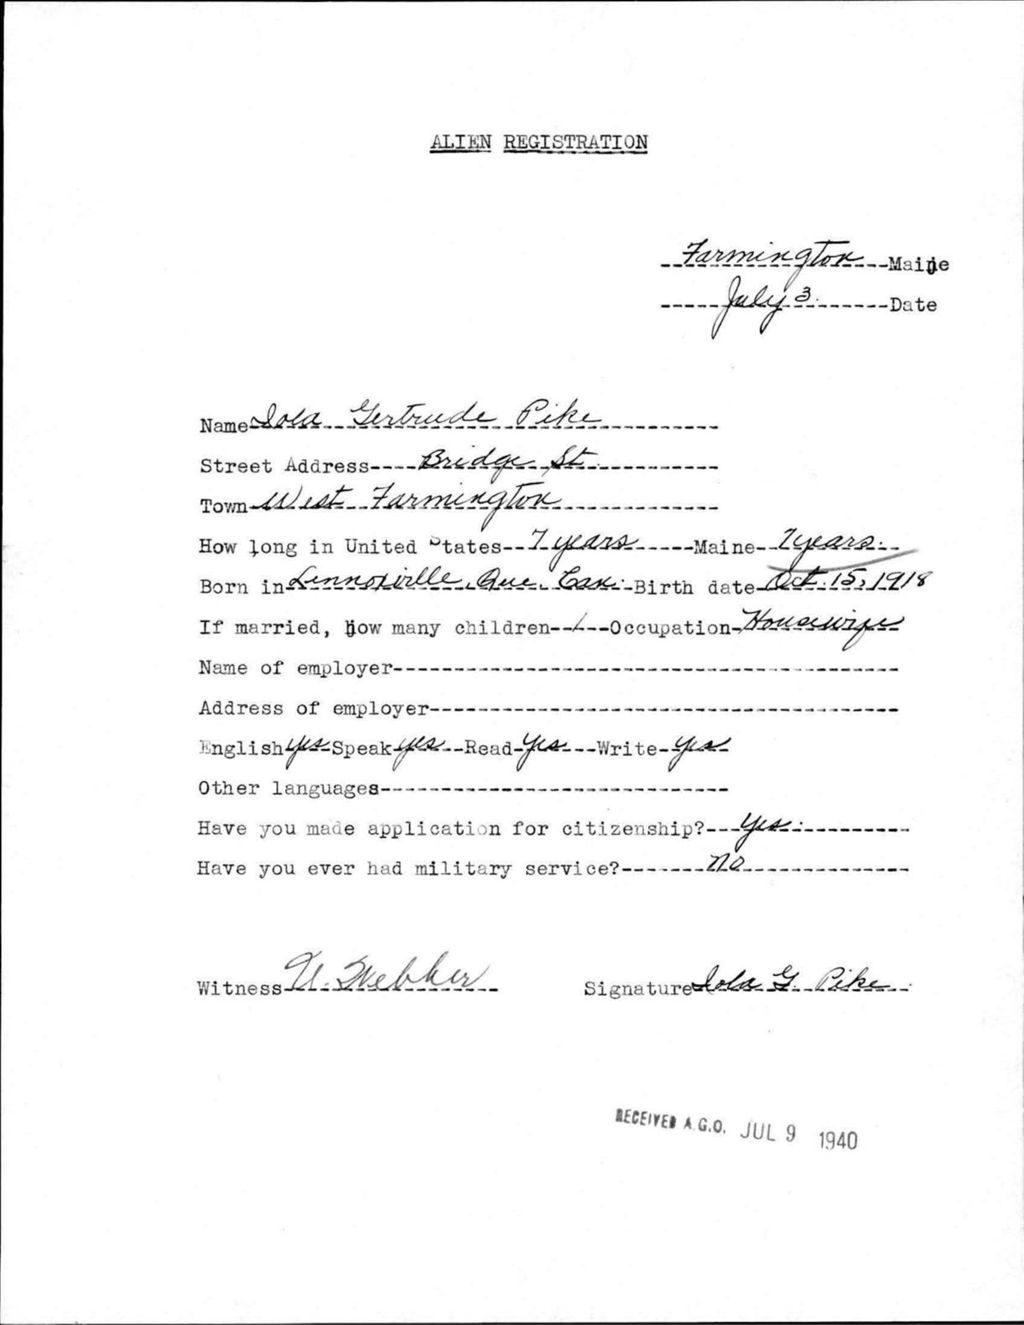 ALIEN REGISTRATION
Farmington Maine
July 3. Date
Name Iola Gertrude Pike
Street Address Bridge St.
Town West Farmington
How long in United States 7 years Maine 7 years.
Born in Lennoxville, Que. Can. Birth date Oct. 15, 1918
If married, how many children 1 Occupation Housewife
Name of employer
Address of employer
English yes Speak yes Read yes Write yes
Other languages
Have you made application for citizenship? Yes.
Have you ever had military service? no
Witness Webber Signature Iola G. Pike
RECEIVED A.G.O. JUL 9 1940